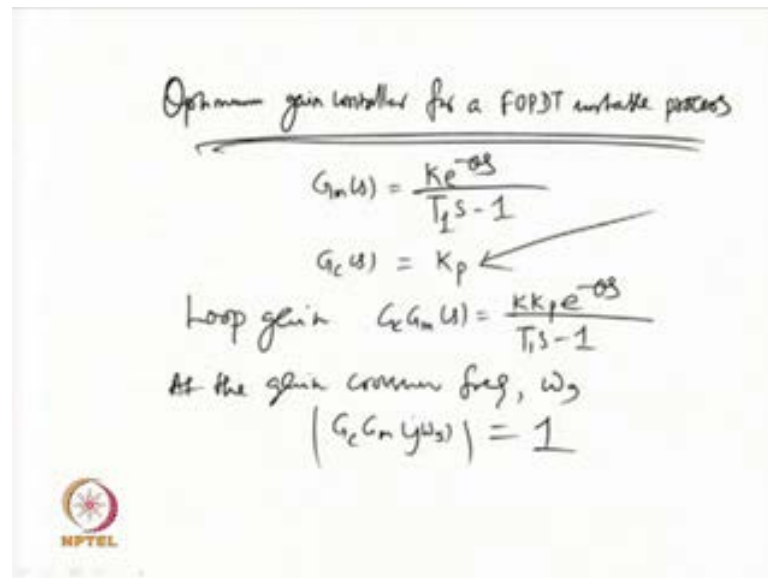 Optimum gain controller for a FOPDT unstable process
Gm(s) = Ke^-θs / T1s - 1
Gc(s) = Kp
Loop gain GcGm(s) = KKpe^-θs / T1s - 1
At the gain crossover freq, ωg
|GcGm(jωg)| = 1
NPTEL